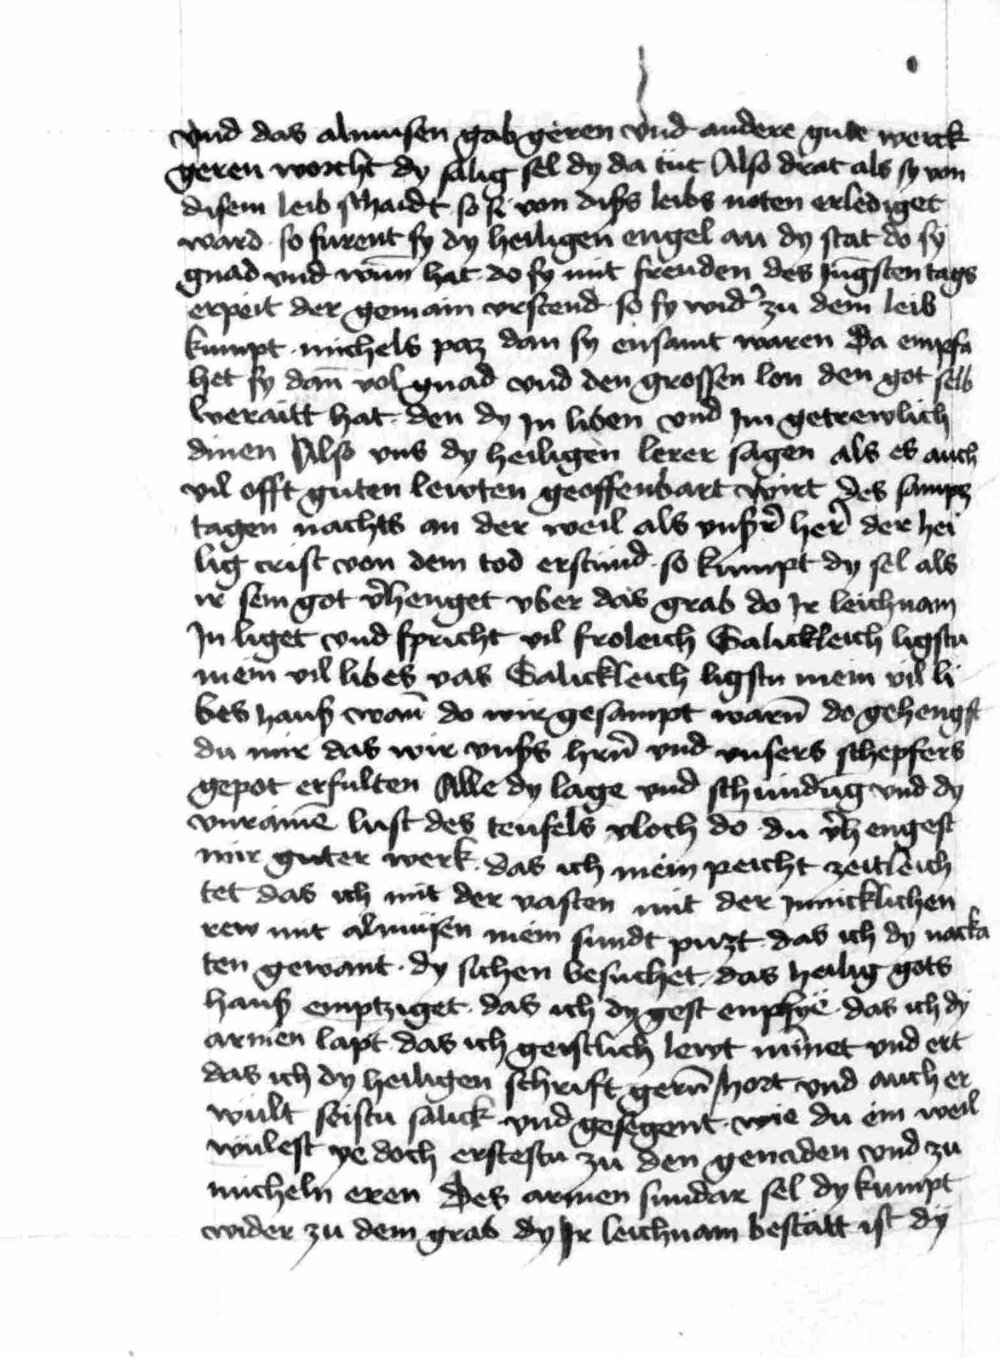 vnd das almusen gab geren vnd andere gute werck
geren worcht dy salig sel dy da tut Also drat als sy von
disem leib schaidt so si von diss leibs noten erlediget
ward · so furent sy dy heiligen engel an dy stat do sy
gnad vnd wun̄ hat · do sy mit freuden des Jūgsten tags
erpeit der gemain vrstend · so sy wid' zu dem leib
kumpt · michels paz dan sy ensamt waren Da empfa
het sy dan̄ vol gnad vnd den grossen lon den got selb
beraitt hat · den dy In liben vnd Im getrewlich
dinen Also vns dy heiligen lerer sagen als es auch
vil offt guten lewten geoffenbart wirt des sampz
tagen nachts an der weil als vnsr̄ her̄ der hei
lig crist von dem tod erstund · so kumpt dy sel als
ir sein got v'henget vber das grab do Ir leichnam
In liget vnd spricht vil froleich Salickleich ligstu
mein vil libes vas Salickleich ligstu mein vil li
bes hauß wan̄ do wir gesampt warn̄ do gehengst
du mir das wir vnsß hrn̄ vnd vnsers schepfers
gepot erfulten Alle dy lage vnd schundūg vnd dy
vnraine lust des teufels vloch do · du v'hengest
mir guter werk · das ich mein peicht zeitleich
tet das ich mit der vasten mit der Innicklichen
rew mit almusen mein sundt puzt · das ich dy nacka
ten gewant · dy sichen besuchet · das heilig gots
hauß emptziget · das ich dy gest enphye · das ich dy
armen lapt · das ich geistlich lewt mīnet vnd ert
das ich dy heiligen schrift gern̄ hort vnd auch er
wult seistu salick · vnd gesegent · wie du ein weil
wulest ye doch erstestu zu den genaden vnd zu
micheln eren Des armen sundar sel dy kumpt
wider zu dem grab dy Ir leichnam bestatt ist dy